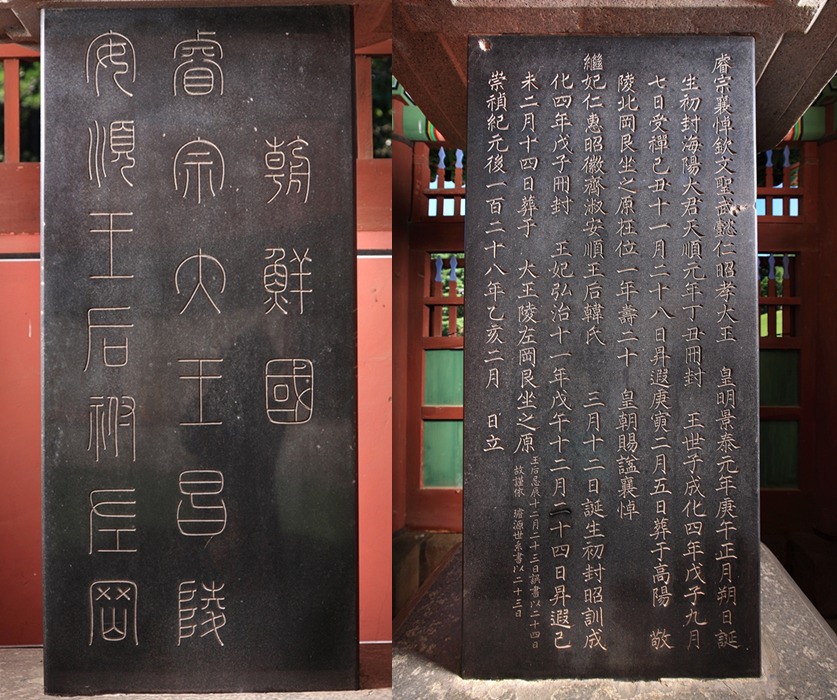 朝鮮國
睿宗大王昌陵
安順王后祔左岡
睿宗襄悼欽文聖武懿仁昭孝大王 皇明景泰元年庚午正月朔日誕
生初封海陽大君天順元年丁丑冊封 王世子成化四年戊子九月
七日受禪己丑十一月二十八日昇遐庚寅二月五日葬于高陽 敬
陵北岡艮坐之原在位一年壽二十 皇朝賜諡襄悼
繼妃仁惠昭徽齊淑安順王后韓氏 三月十二日誕生初封昭訓成
化四年戊子冊封 王妃弘治十一年戊午十二月二十四日昇遐己
未二月十四日葬于 大王陵左岡艮坐之原
王后忌辰十二月二十三日誤書以二十四日
故謹依 璿源世系書以二十三日
崇禎紀元後一百二十八年乙亥二月 日立